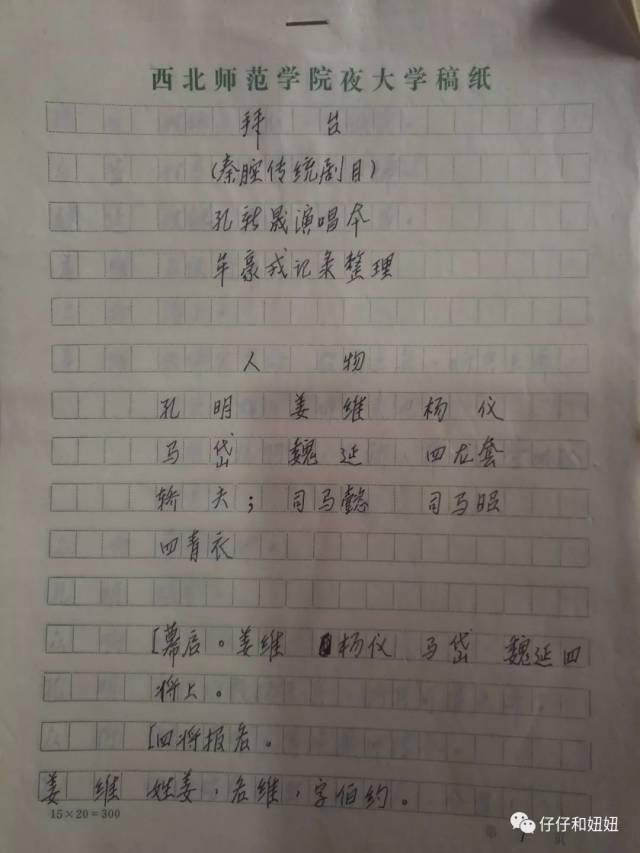 西北师范学院夜大学稿纸
拜 台
(秦腔传统剧目)
孔新晟演唱本
牟豪戎记录整理
人 物
孔 明 姜 维 杨 仪
马 岱 魏 延 四龙套
轿 夫；司马懿 司马昭
四青衣
[幕启。姜维 杨仪 马岱 魏延四
将上。
[四将报名。
姜 维 姓姜，名维，字伯约。
15×20=300
第 1 页
仔仔和妞妞